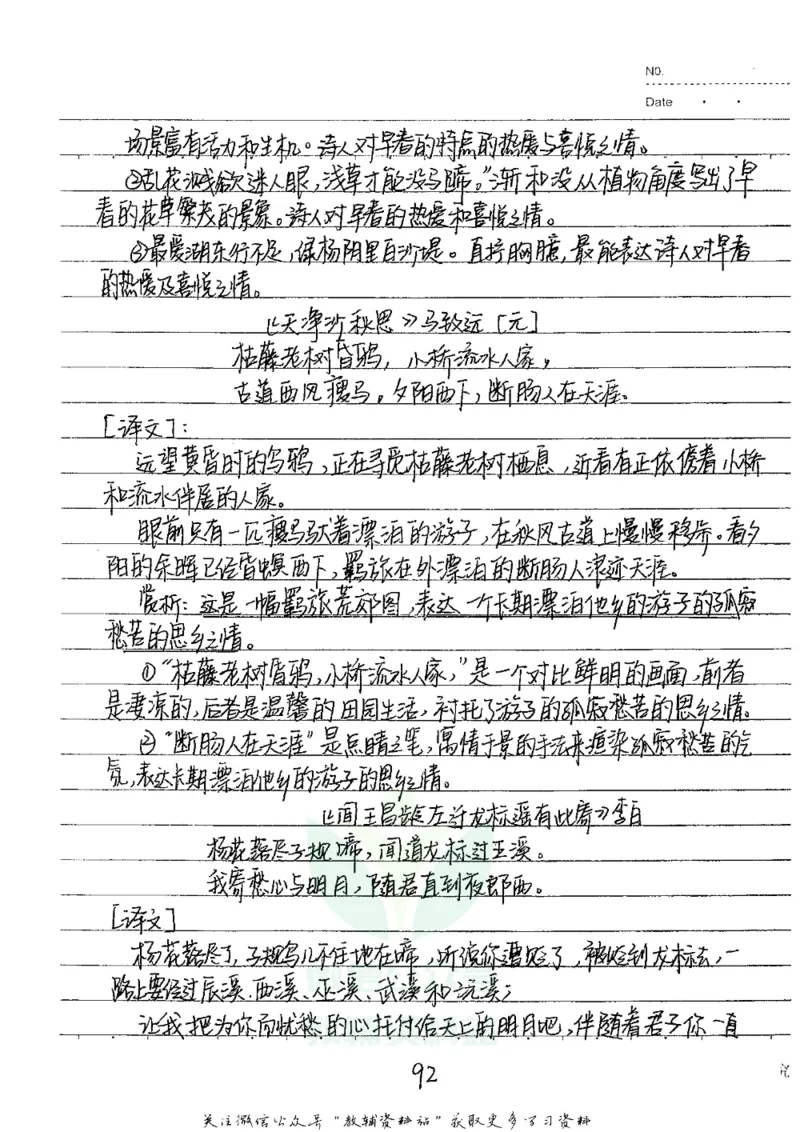 No.
Date
场景富有活力和生机。诗人对早春的特点的热爱与喜悦之情。
②乱花渐欲迷人眼,浅草才能没马蹄。"渐和没从植物角度写出了早
春的花草繁茂的景象。诗人对早春的热爱和喜悦之情。
③最爱湖东行不足,绿杨阴里白沙堤。直抒胸臆,最能表达诗人对早春
的热爱及喜悦之情。
《天净沙秋思》马致远[元]
枯藤老树昏鸦,小桥流水人家,
古道西风瘦马。夕阳西下,断肠人在天涯。
[译文]:
远望黄昏时的乌鸦,正在寻觅枯藤老树栖息,近看有正依傍着小桥
和流水伴居的人家。
眼前只有一匹瘦马驮着漂泊的游子,在秋风古道上慢慢移步。看夕
阳的余晖已经昏暝西下,羁旅在外漂泊的断肠人浪迹天涯。
赏析:这是一幅羁旅荒郊图,表达一个长期漂泊他乡的游子的孤寂
愁苦的思乡之情。
①"枯藤老树昏鸦,小桥流水人家,"是一个对比鲜明的画面,前者
是凄凉的,后者是温馨的田园生活,衬托了游子的孤寂愁苦的思乡之情。
②"断肠人在天涯"是点睛之笔,寓情于景的手法来渲染孤寂愁苦的气
氛,表达长期漂泊他乡的游子的思乡之情。
《闻王昌龄左迁龙标遥有此寄》李白
杨花落尽子规啼,闻道龙标过五溪。
我寄愁心与明月,随君直到夜郎西。
[译文]
杨花落尽了,子规鸟儿不住地在啼,听说你遭贬了,被贬到龙标去,一
路上要经过辰溪、酉溪、巫溪、武溪和沅溪;
让我把为你而忧愁的心托付给天上的明月吧,伴随着君子你一直
92
关注微信公众号"教辅资料站"获取更多学习资料